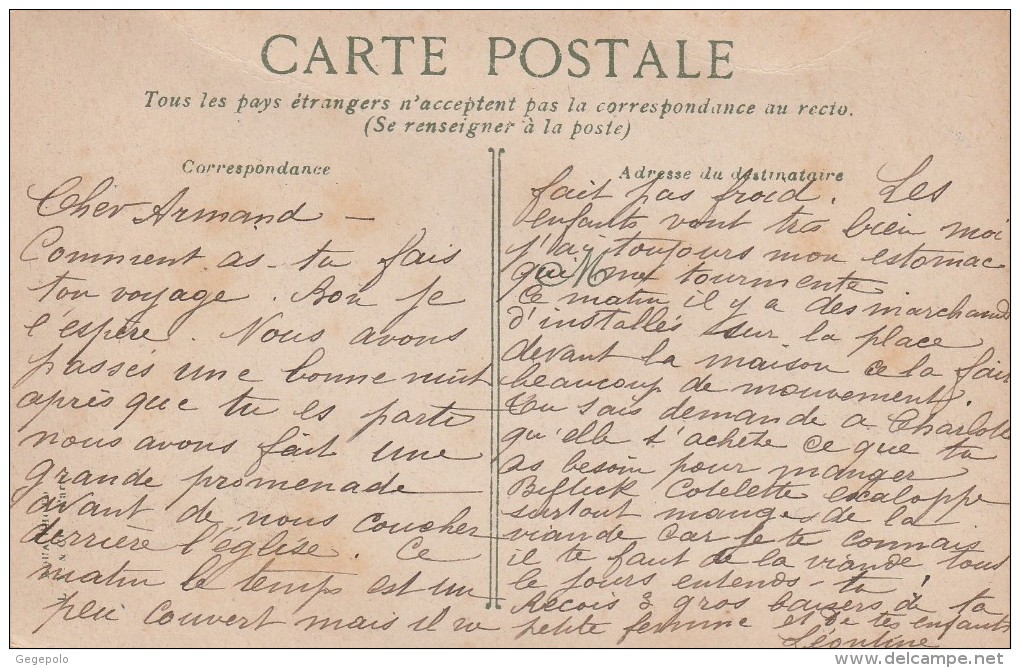 CARTE POSTALE
Tous les pays étrangers n'acceptent pas la correspondance au recto.
(Se renseigner à la poste)
Correspondance
Cher Armand –
Comment as-tu fais
ton voyage. Bon je
l'espère. Nous avons
passés une bonne nuit
après que tu es parti
nous avons fait une
grande promenade
avant de nous coucher
derrière l'église. Ce
matin le temps est un
peu couvert mais il ne
Adresse du destinataire
fait pas froid. Les
enfants vont très bien moi
j'ay toujours mon estomac
qui me tourmente
Ce matin il y a des marchands
d'installés sur la place
devant la maison cela fait
beaucoup de mouvement.
Tu sais demande a Charlotte
qu'elle t'achète ce que tu
as besoin pour manger
Bifteck Cotelette escaloppe
surtout manges de la
viande car je te connais
il te faut de la viande tous
les jours entends-tu
Recois 3 gros baisers de ta
petite femme et de tes enfants
Léontine
Gegepolo
delcampe.net